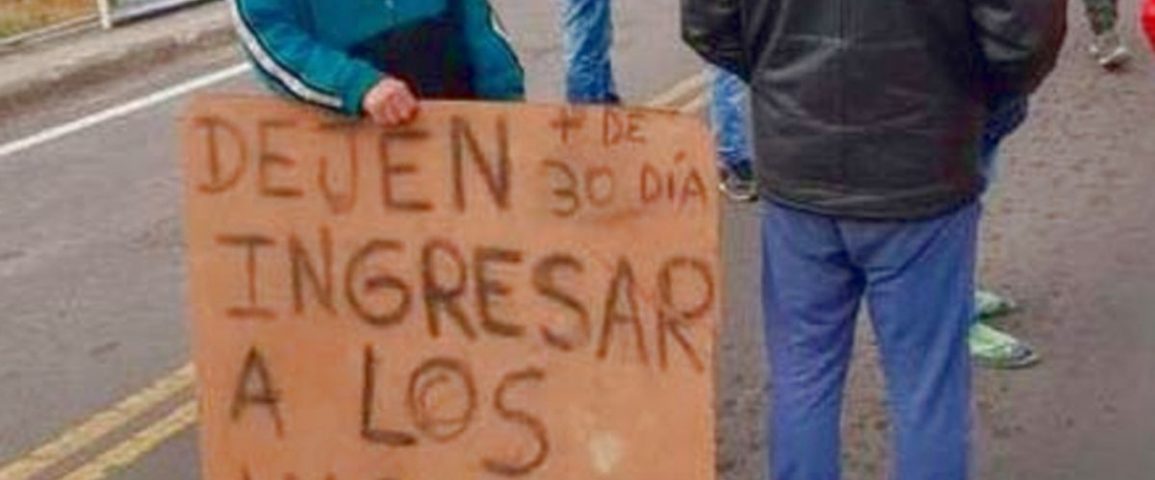 DEJEN
+ DE
30 DÍA
INGRESAR
A LOS